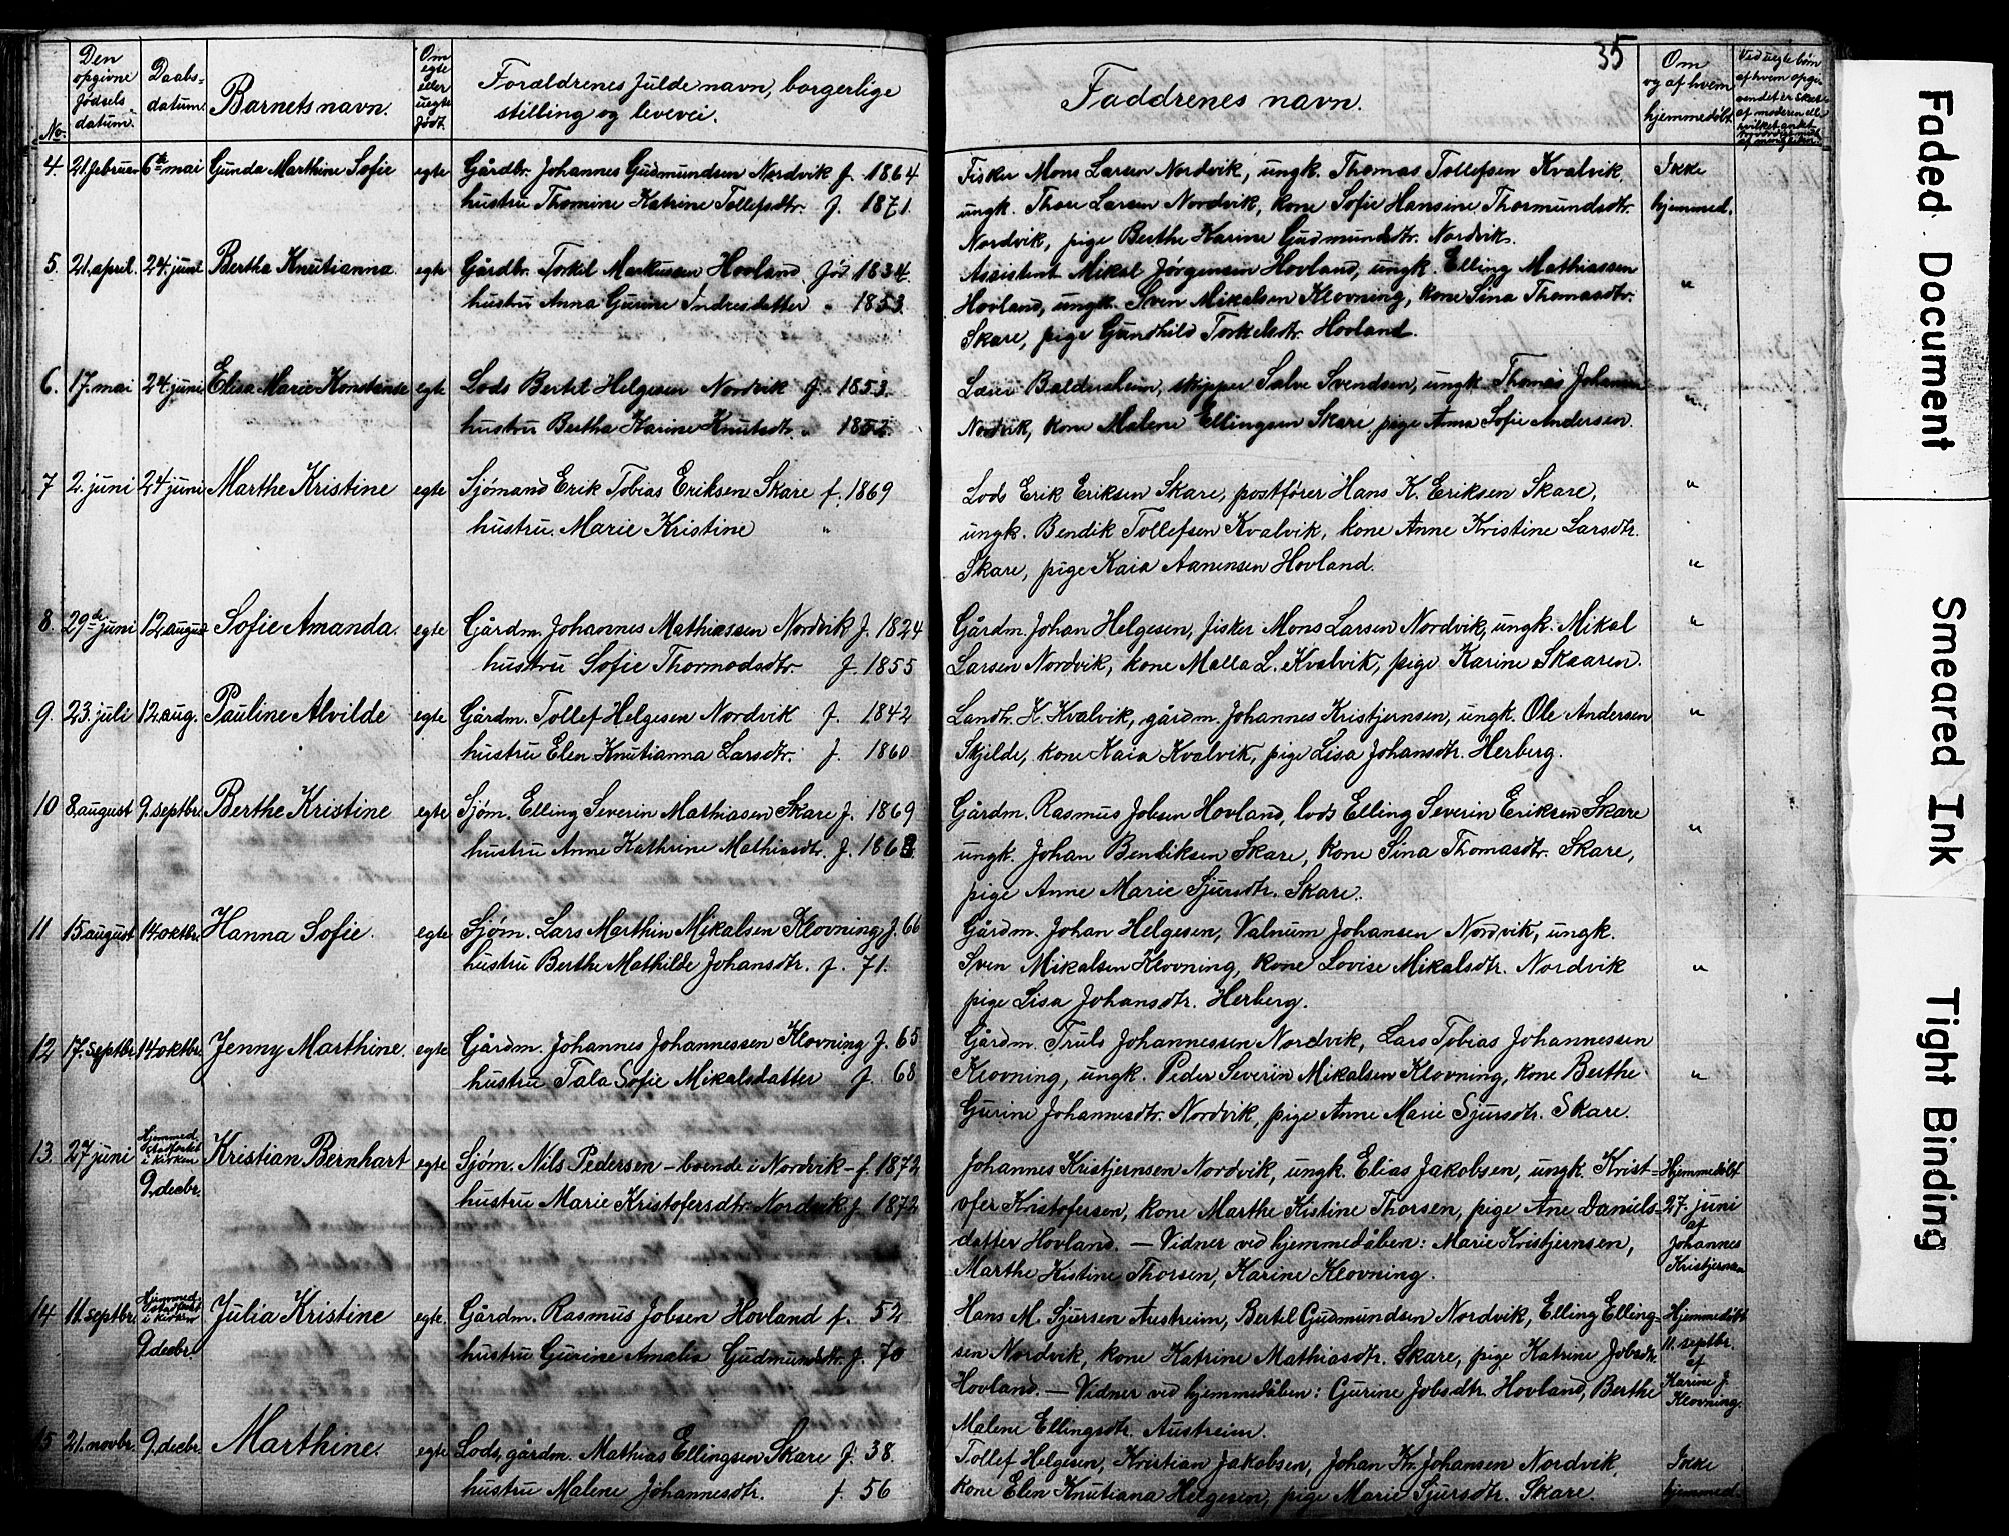 35
No.
Den opgivne fødselsdatum.
Daabsdatum.
Barnets navn.
Om egte eller uegte født.
Forældrenes fulde navn, borgerlige
stilling og levevei.
Faddrenes navn.
Om og af hvem hjemmedøbt
4. 21. februar 6te mai Gunda Marthine Sofie egte Gårdbr. Johannes Gudmundsen Nordvik f. 1864
hustru Thomine Katrine Tollefsdtr. f. 1871.
Fisker Mons Larsen Nordvik, ungk. Thomas Tollefsen Kvalvik, Ikke
ungk. Thore Larsen Nordvik, kone Sofie Hansine Thormundsdtr. hjemmed.
Nordvik, pige Berthe Karine Gudmundsdtr. Nordvik.
5. 21. april. 24. juni Bertha Knutianna. egte Gårdbr. Torkel Markussen Hovland fød 1834.
hustru Anna Gurine Indresdatter " 1853.
Assistent Mikal Jørgensen Hovland, ungk. Elling Mathiassen
Hovland, ungk. Sven Mikalsen Klovning, kone Sina Thomasdtr. "
Skare, pige Gundhild Torkelsdtr. Hovland.
6. 17. mai 24. juni Elisa Marie Konstanse egte Lods Bertel Helgesen Nordvik f. 1853.
hustru Bertha Karine Knutsdtr. " 1852.
Lærer Baldersheim, skipper Salve Svendsen, ungk. Thomas Johannes "
Nordvik, kone Malene Ellingsen Skare, pige Anna Sofie Andersen.
7 2. juni 24 juni Marthe Kristine egte Sjømand Erik Tobias Eriksen Skare f. 1869
hustru. Marie Kristine "
Lods Erik Eriksen Skare, postfører Hans K. Eriksen Skare, "
ungk. Bendik Tollefsen Kvalvik, kone Anne Kristine Larsdtr.
Skare, pige Kaia Aanensen Hovland. "
8. 29de juni 12. august Sofie Amanda. egte Gårdm. Johannes Mathiassen Nordvik f. 1824
hustru Sofie Thormodsdtr. f. 1855
Gårdm. Johan Helgesen, fisker Mons Larsen Nordvik, ungk. Mikal "
Larsen Nordvik, kone Malla L. Kvalvik, pige Karine Skaaren.
9. 23. juli 12. aug. Pauline Alvilde egte Gårdm. Tollef Helgesen Nordvik f. 1842
hustru Elen Knutianna Larsdtr. f. 1860
Landh. K. Kvalvik, gårdm. Johannes Kristjernsen, ungk. Ole Andersen "
Skjilde, kone Kaia Kvalvik, pige Lisa Johansdtr. Herberg.
10 8. august 9. septbr. Berthe Kristine egte Sjøm. Elling Severin Mathiasen Skare f. 1869
hustru Anne Kathrine Mathiasdtr. f. 1863
Gårdm. Rasmus Jobsen Hovland, lods Elling Severin Eriksen Skare
ungk. Johan Bendiksen Skare, kone Sina Thomasdtr. Skare, "
pige Anne Marie Sjursdtr. Skare.
11 15 august 14 oktbr. Hanna Sofie. egte Sjøm. Lars Marthin Mikalsen Klovning f. 66
hustru Berthe Mathilde Johansdtr. f. 71.
Gårdm. Johan Helgesen, Valnum Johansen Nordvik, ungk.
Sven Mikalsen Klovning, kone Lovise Mikalsdtr. Nordvik "
pige Lisa Johansdtr. Herberg.
12 17. septbr. 14 oktbr. Jenny Marthine. egte Gårdm. Johannes Johannessen Klovning f. 65
hustru Tala Sofie Mikalsdatter f. 68
Gårdm. Truls Johannessen Nordvik, Lars Tobias Johannessen
Klovning, ungk. Peder Severin Mikalsen Klovning, kone Berthe "
Gurine Johannesdtr. Nordvik, pige Anne Marie Sjursdtr. Skare.
13. 27 juni Hjemmed. stadfestet i kirken 9. decbr. Kristian Bernhart egte Sjøm. Nils Pedersen – boende i Nordvik – f. 1872
hustru Marie Kristofersdtr. Nordvik f. 1872
Johannes Kristjernsen Nordvik, ungk. Elias Jakobsen, ungk. Krist- Hjemmedøbt
ofer Kristofersen, kone Marthe Kistine Thorsen, pige Ane Daniels- 27. juni
datter Hovland. – Vidner ved hjemmedåben: Marie Kristjernsen, af Johannes
Marthe Kistine Thorsen, Karine Klovning. Kristjernsen
14 11. septbr. Hjemmed. stadfest i kirken 9 decbr. Julia Kristine egte. Gårdm. Rasmus Jobsen Hovland f. 52
hustru Gurine Amalia Gudmundsdtr. f. 70
Hans M. Sjursen Austreim, Bertel Gudmundsen Nordvik, Elling Elling- Hjemmedøbt
sen Nordvik, kone Katrine Mathiasdtr. Skare, pige Katrine Jobsdtr. 11. septbr.
Hovland. – Vidner ved hjemmedåben: Gurine Jobsdtr. Hovland, Berthe af Karine J.
Malene Ellingsdtr. Austreim. Klovning.
15 21. novbr. 9. decbr. Marthine. egte Lods, gårdm. Mathias Ellingsen Skare f. 38.
hustru Malene Johannesdtr. f. 56
Tollef Helgesen, Kristian Jakobsen, Johan Kn. Johansen Nordvik, Ikke
kone Elen Knutiana Helgesen, pige Marie Sjursdtr. Skare. hjemmed.
Faded Document
Smeared Ink
Tight Binding